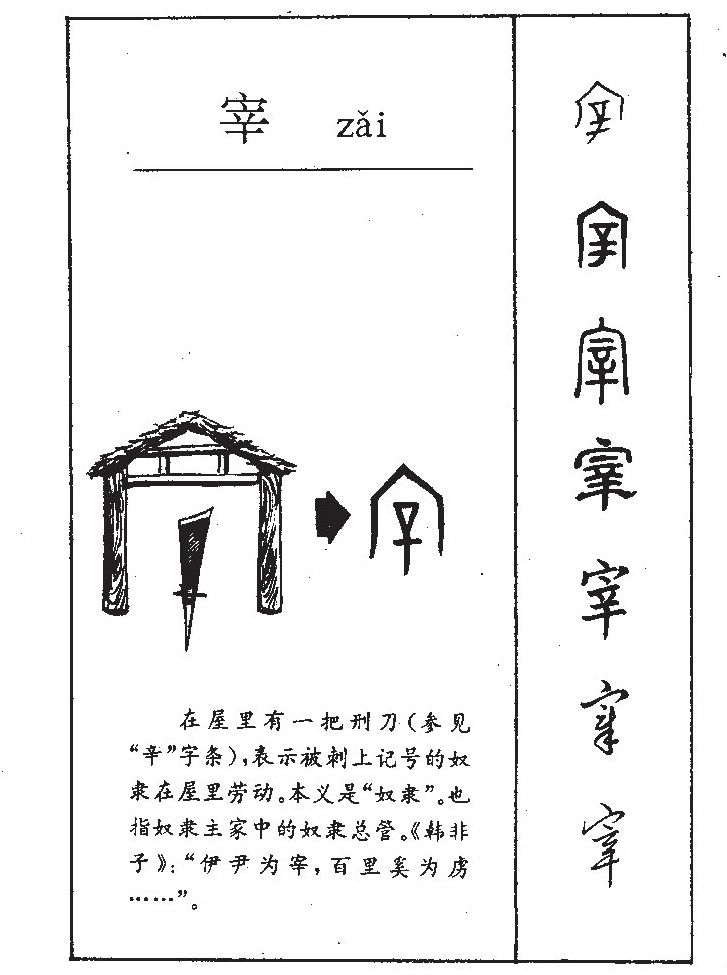 宰 zǎi
在屋里有一把刑刀(参见
“辛”字条),表示被刺上记号的奴
隶在屋里劳动。本义是“奴隶”。也
指奴隶主家中的奴隶总管。《韩非
子》:“伊尹为宰,百里奚为虏
……”。
宰
宰
宰
宰
宰
宰
宰